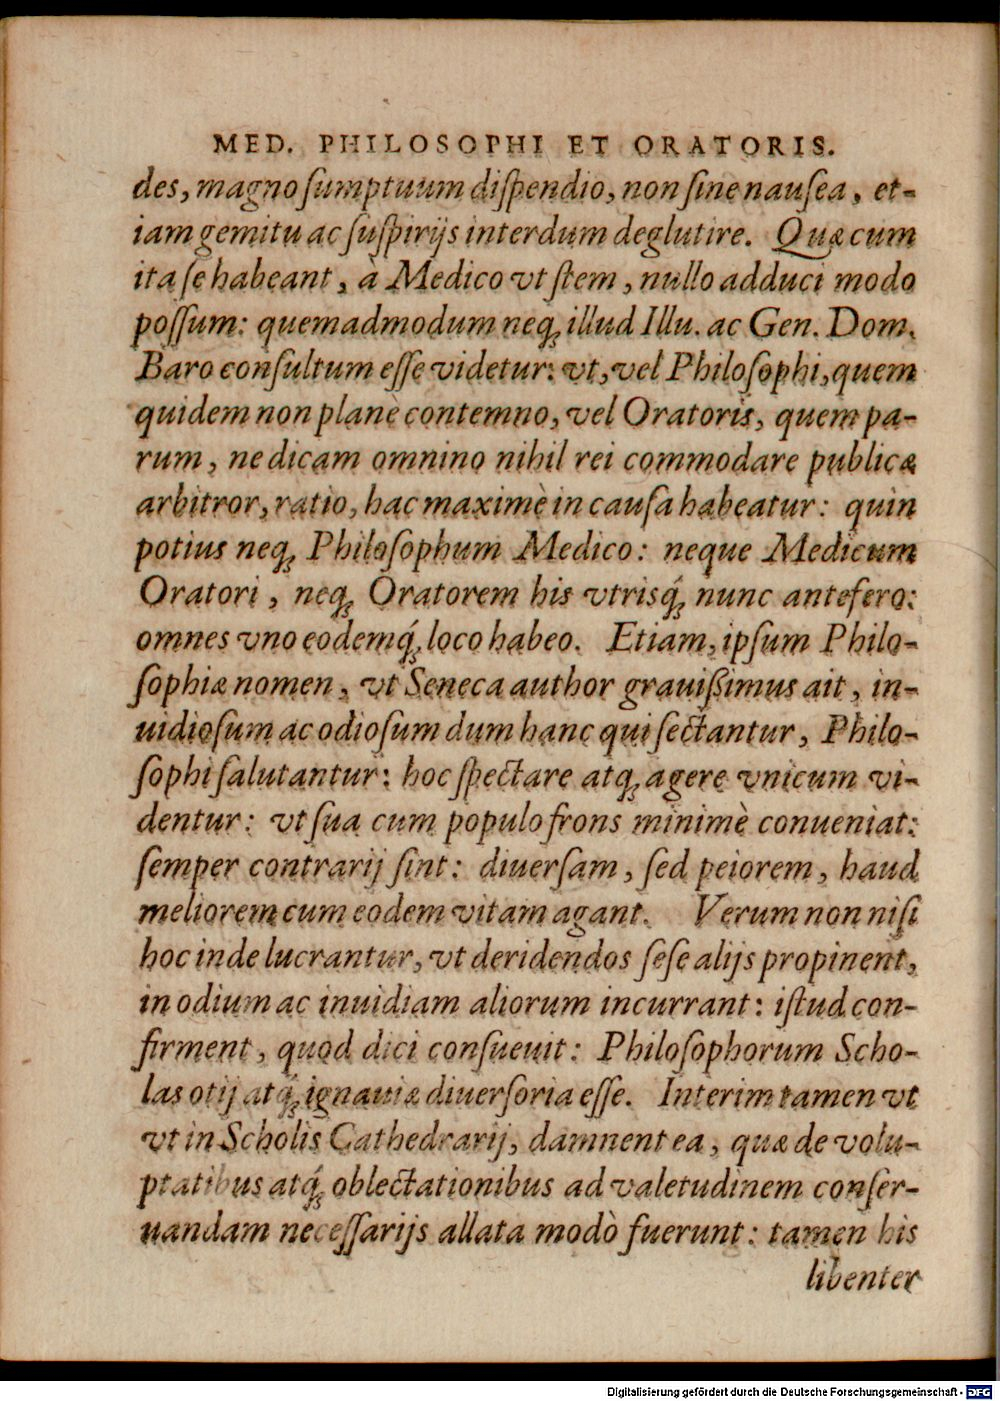 MED. PHILOSOPHI ET ORATORIS.
des, magno ſumptuum diſpendio, non ſine nauſea, et-
iam gemitu ac ſuſpirijs interdum deglutire. Quæ cum
ita ſe habeant, à Medico vt ſtem, nullo adduci modo
poſſum: quemadmodum neqꝫ illud Illu. ac Gen. Dom.
Baro conſultum eſſe videtur: vt, vel Philoſophi, quem
quidem non planè contemno, vel Oratoris, quem pa-
rum, ne dicam omnino nihil rei commodare publicæ
arbitror, ratio, hac maximè in cauſa habeatur: quin
potius neqꝫ Philoſophum Medico: neque Medicum
Oratori, neqꝫ Oratorem his vtriſq́ꝫ nunc antefero:
omnes vno eodemq́ꝫ loco habeo. Etiam, ipſum Philo-
ſophiæ nomen, vt Seneca author grauißimus ait, in-
uidioſum ac odioſum dum hanc qui ſectantur, Philo-
ſophi ſalutantur: hoc ſpectare atqꝫ agere vnicum vi-
dentur: vt ſua cum populo frons minimè conueniat:
ſemper contrarij ſint: diuerſam, ſed peiorem, haud
meliorem cum eodem vitam agant. Verum non niſi
hoc inde lucrantur, vt deridendos ſeſe alijs propinent,
in odium ac inuidiam aliorum incurrant: iſtud con-
firment, quod dici conſueuit: Philoſophorum Scho-
las otij atq́ꝫ ignauiæ diuerſoria eſſe. Interim tamen vt
vt in Scholis Cathedrarij, damnent ea, quæ de volu-
ptatibus atq́ꝫ oblectationibus ad valetudinem conſer-
uandam neceſſarijs allata modò fuerunt: tamen his
libenter
Digitalisierung gefördert durch die Deutsche Forschungsgemeinschaft - DFG